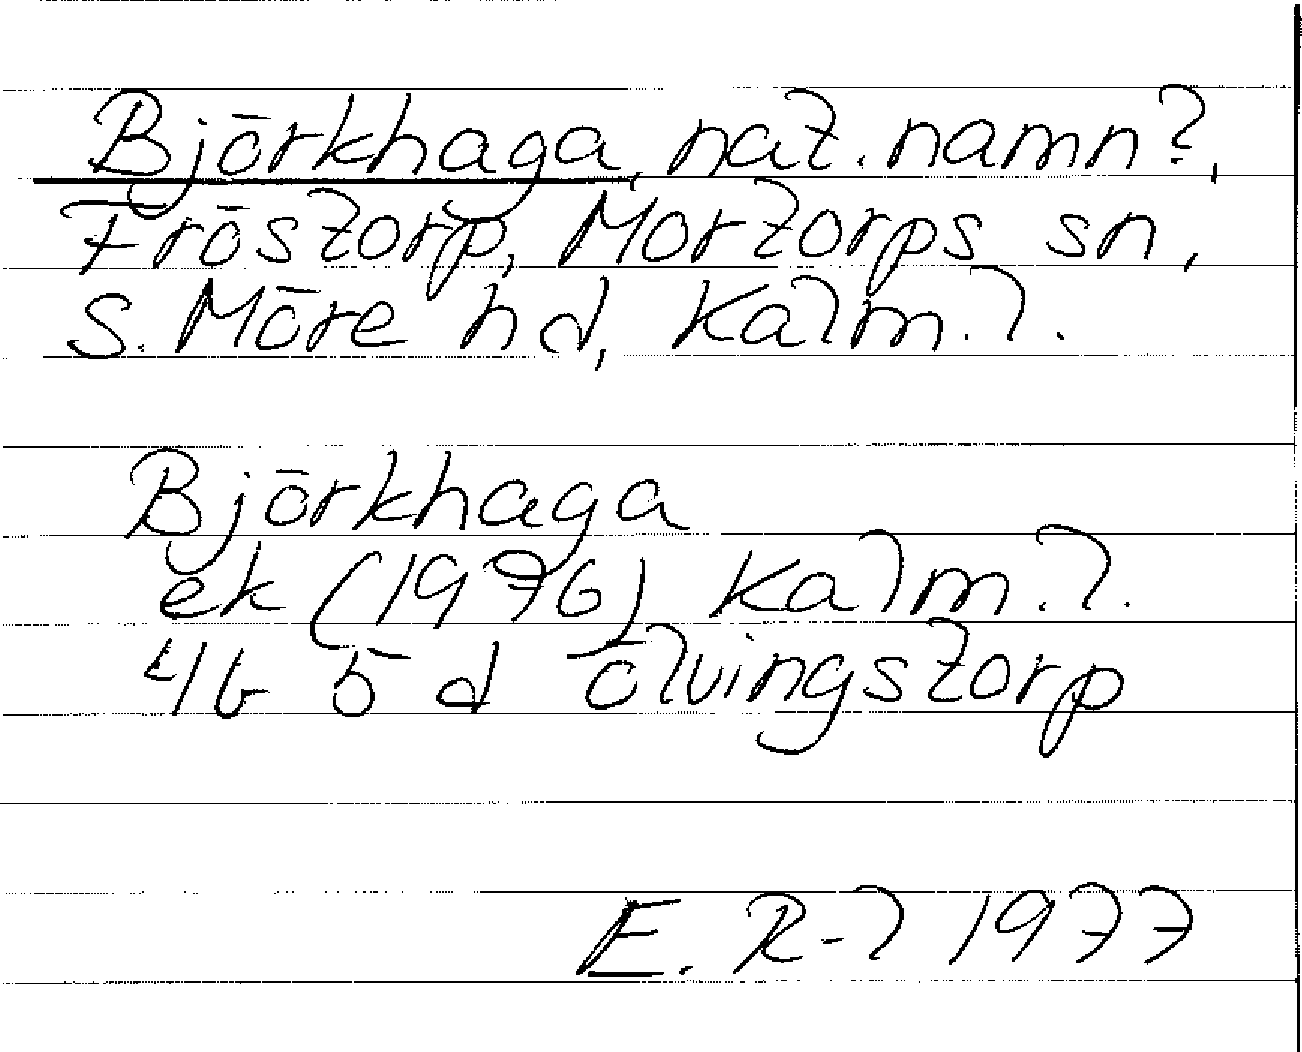 Björkhaga, nat. namn?,
Fröstorp, Mortorps sn,
S. Möre hd, Kalm. l.
Björkhaga
ek (1976) Kalm. l.
4G 5 d Ölvingstorp
E. R-l 1977